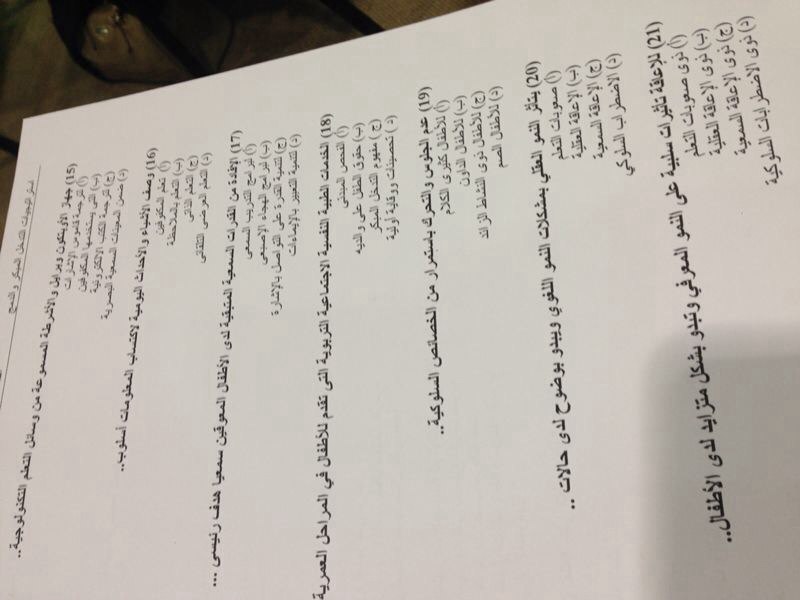 (15) جهاز الأوبتكون وبرايل والأشرطة المسموعة من وسائل التعلم التكنولوجية..
(أ) لترجمة قاموس الإشارات
(ب) التي يستخدمها المكفوفين
(ج) لترجمة الكتب الالكترونية
(د) ضمن المعينات السمعية البصرية
(16) وصف الأشياء والأحداث اليومية لاكتساب المعلومات أسلوب..
(أ) تعلم المكفوفين
(ب) التعلم بالملاحظة
(ج) التعلم الذاتي
(د) التعلم العرضي التلقائي
(17) الإفادة من القدرات السمعية المتبقية لدى الأطفال المعوقين سمعيا هدف رئيسى ...
(أ) لبرامج التدريب السمعى
(ب) لبرامج الهجاء الإصبعي
(ج) لتنمية القدرة على التواصل بالإشارة
(د) لتنمية التعبير بالإيماءات
(18) الخدمات الطبية النفسية الاجتماعية التربوية التى تقدم للأطفال في المراحل العمرية
(أ) الفحص المبدئى
(ب) حقوق الطفل على والديه
(ج) مفهوم التدخل المبكر
(د) تحصينات ووقاية أولية
(19) عدم الجلوس والتحرك باستمرار من الخصائص السلوكية..
(أ) للأطفال كثيرى الكلام
(ب) للأطفال الداون
(ج) للأطفال ذوى النشاط الزائد
(د) للأطفال الصم
(20) يتأثر النمو العقلي بمشكلات النمو اللغوي ويبدو بوضوح لدى حالات ..
(أ) صعوبات التعلم
(ب) الإعاقة العقلية
(ج) الإعاقة السمعية
(د) الاضطراب السلوكي
(21) للإعاقة تأثيرات سلبية على النمو المعرفي وتبدو بشكل متزايد لدى الأطفال..
(أ) ذوى صعوبات التعلم
(ب) ذوى الإعاقة العقلية
(ج) ذوى الإعاقة السمعية
(د) ذوى الاضطرابات السلوكية